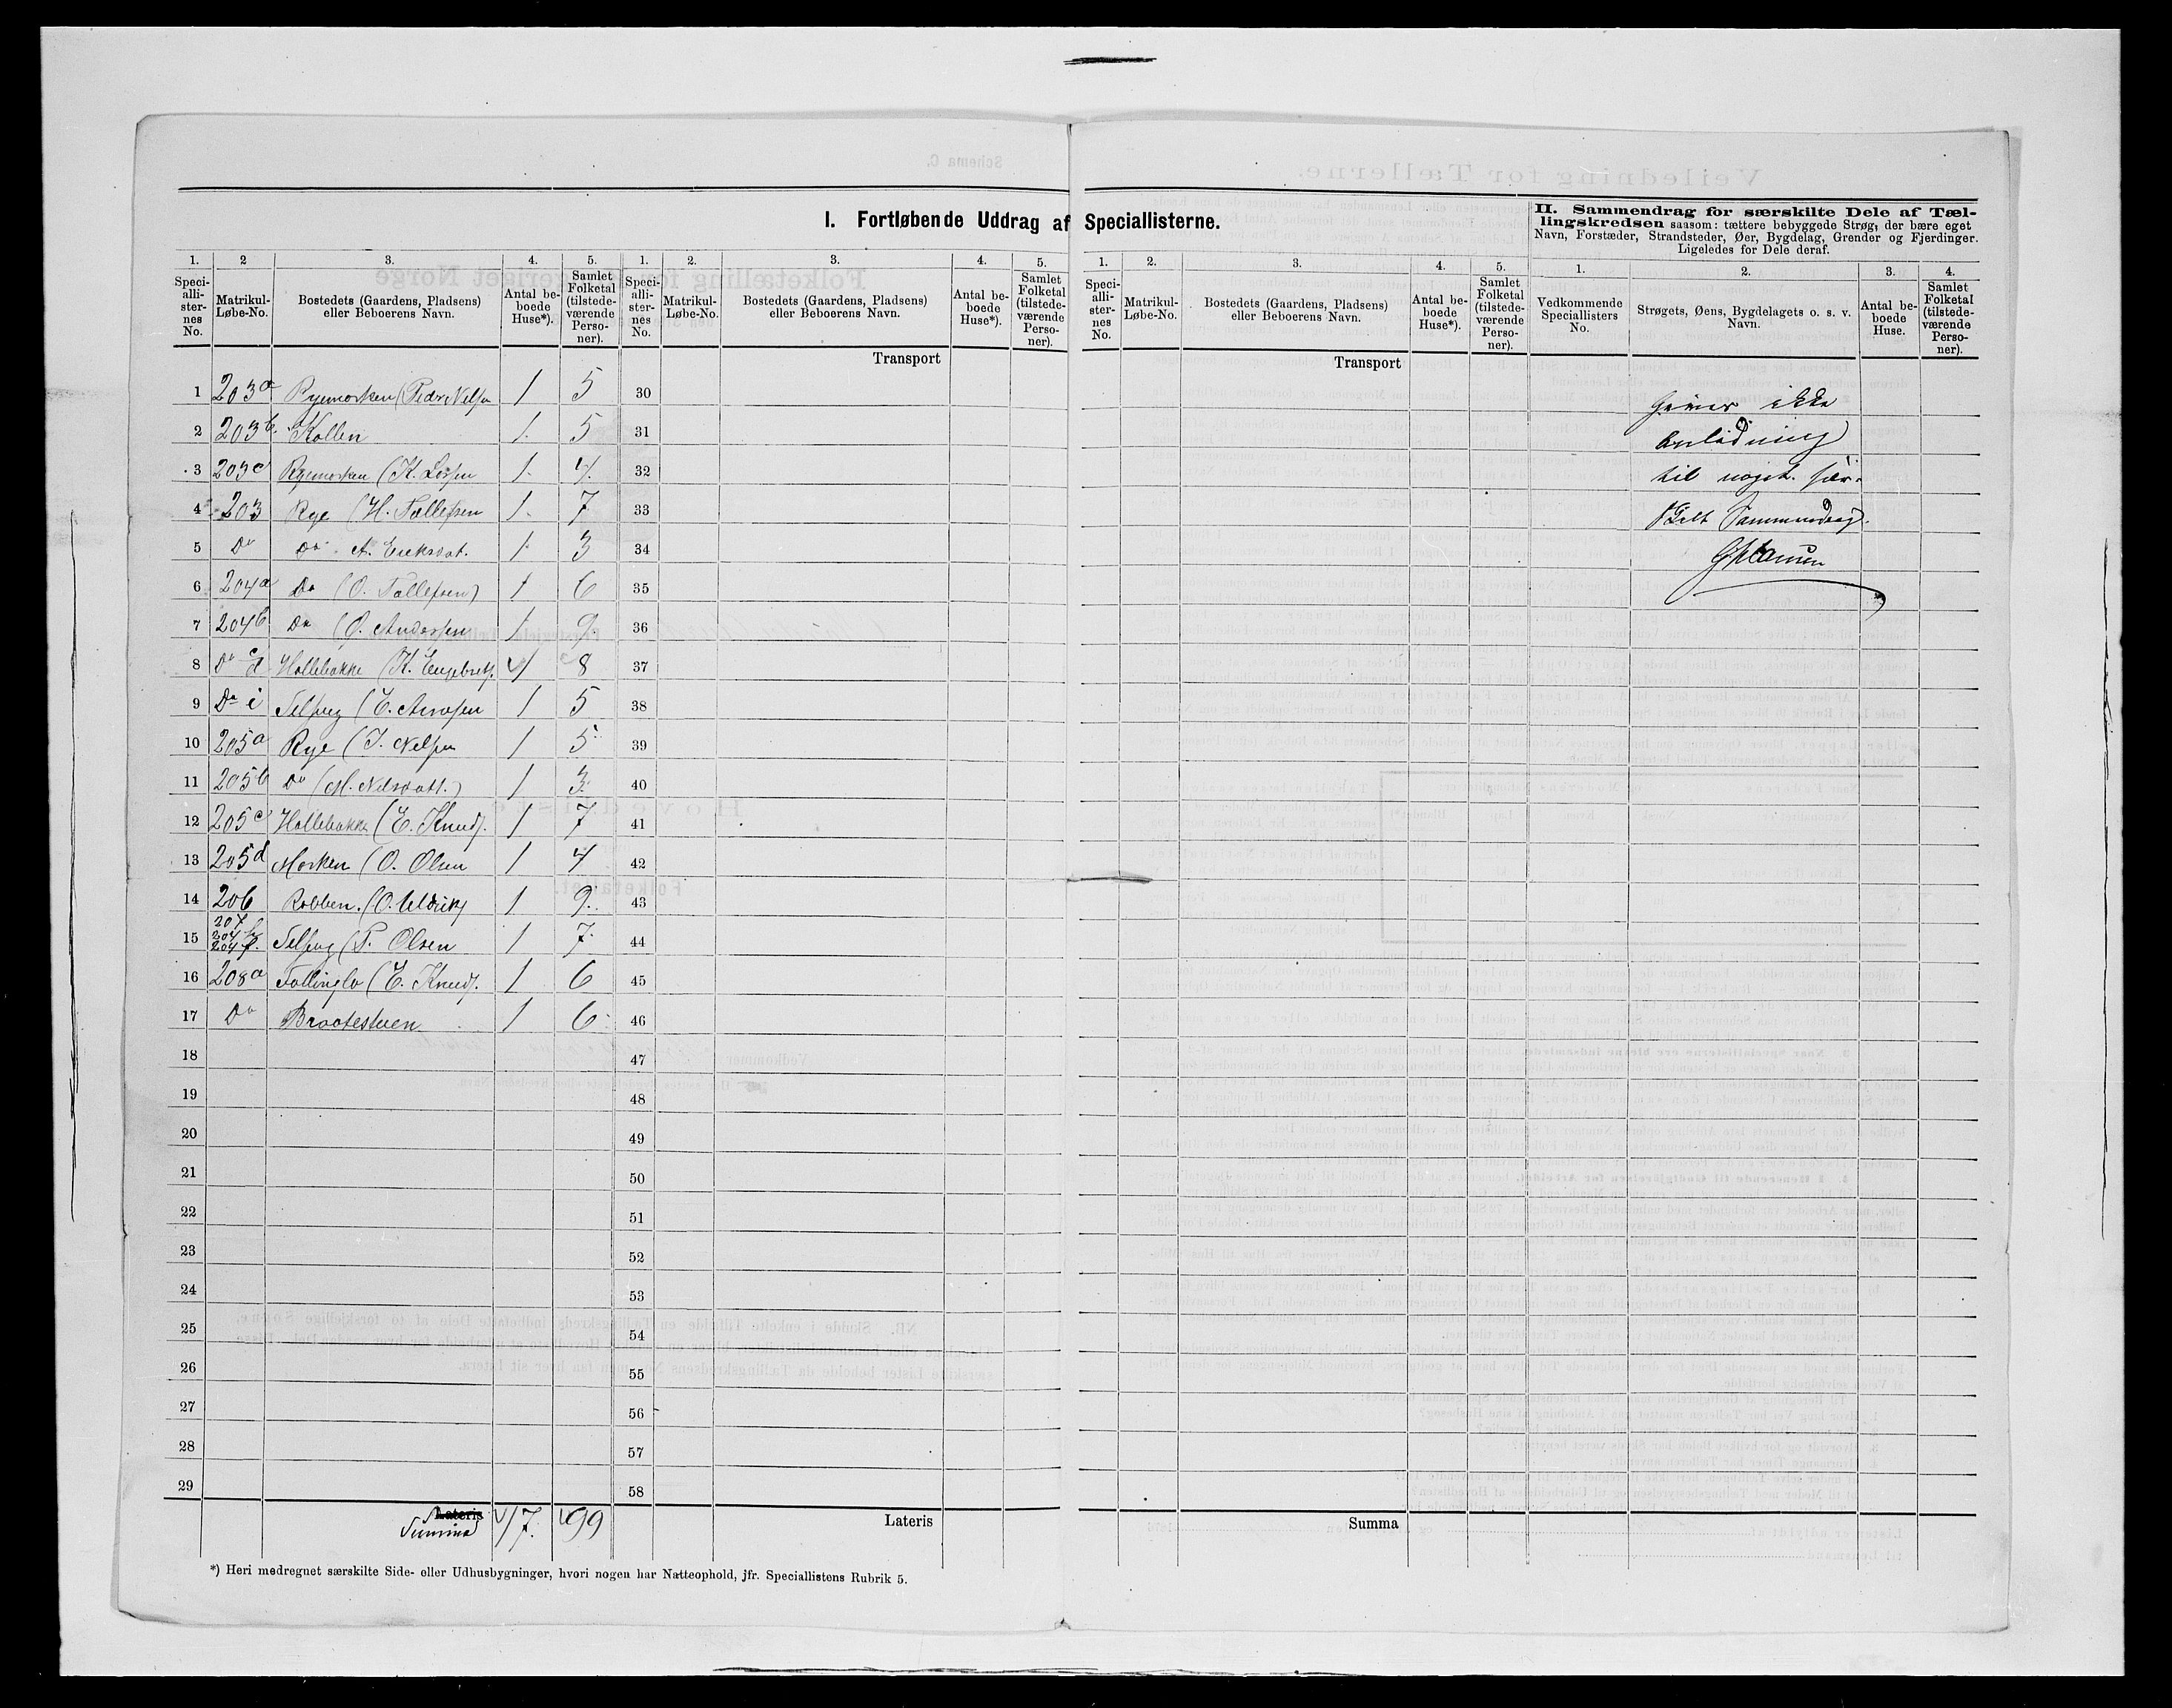 I. Fortløbende Uddrag af Speciallisterne.
II. Sammendrag for særskilte Dele af Tællingskredsen saasom: tættere bebyggede Strøg, der bære eget Navn, Forstæder, Strandsteder, Øer, Bygdelag, Grender og Fjerdinger. Ligeledes for Dele deraf.
1. 2 3. 4. 5. 1. 2. 3. 4. 5. 1. 2. 3. 4. 5. 1. 2. 3. 4.
Speciallisternes No. Matrikul-Løbe-No. Bostedets (Gaardens, Pladsens) eller Beboerens Navn. Antal beboede Huse*). Samlet Folketal (tilstedeværende Personer).
Speciallisternes No. Matrikul-Løbe-No. Bostedets (Gaardens, Pladsens) eller Beboerens Navn. Antal beboede Huse*). Samlet Folketal (tilstedeværende Personer).
Speciallisternes No. Matrikul-Løbe-No. Bostedets (Gaardens, Pladsens) eller Beboerens Navn. Antal beboede Huse*). Samlet Folketal (tilstedeværende Personer).
Vedkommende Speciallisters No. Strøgets, Øens, Bygdelagets o. s. v. Navn. Antal beboede Huse. Samlet Folketal (tilstedeværende Personer).
Transport
Transport
1 203a Ryemorken (Peder Nelsen 1 5 30
2 203b. Kollen 1. 5 31
3 203c Ryemorken (K. 1. 4. 32
4 203 Rye (H. Tollefsen 1. 7 33
5 Do Do A. Eriksdat. 1 3 34
6 204a Do (O. Tollefsen) 1 6 35
7 204b Do (O. Anderssen 1 9 36
8 Do c d Hollebakke (K. Engebrets. 1 8 37
9 Do i (E. 1 5 38
10 205a Rye (I. Nelsen 1 5 39
11 205b Do (M. Nelsdatt.) 1 3 40
12 205c Hollebakke (E. Knuds. 1 7 41
13 205d Morken (O. Olsen 1 4 42
14 206 Robben. (O. 1 9. 43
15 207 204 204 f. (P. Olsen 1 7. 44
16 208a (E. Knuds. 1 6 45
17 Do Braatestuen 1 6 46
18 47
19 48
20 49
21 50
22 51
23 52
24 53
25 54
26 55
27 56
28 57
29 58
Lateris
Summa 17. 99
Lateris
Summa
Giver ikke
Anledning
til noget sær-
skilt Sammendrag.
*) Heri medregnet særskilte Side- eller Udhusbygninger, hvori nogen har Natteophold, jfr. Speciallistens Rubrik 5.